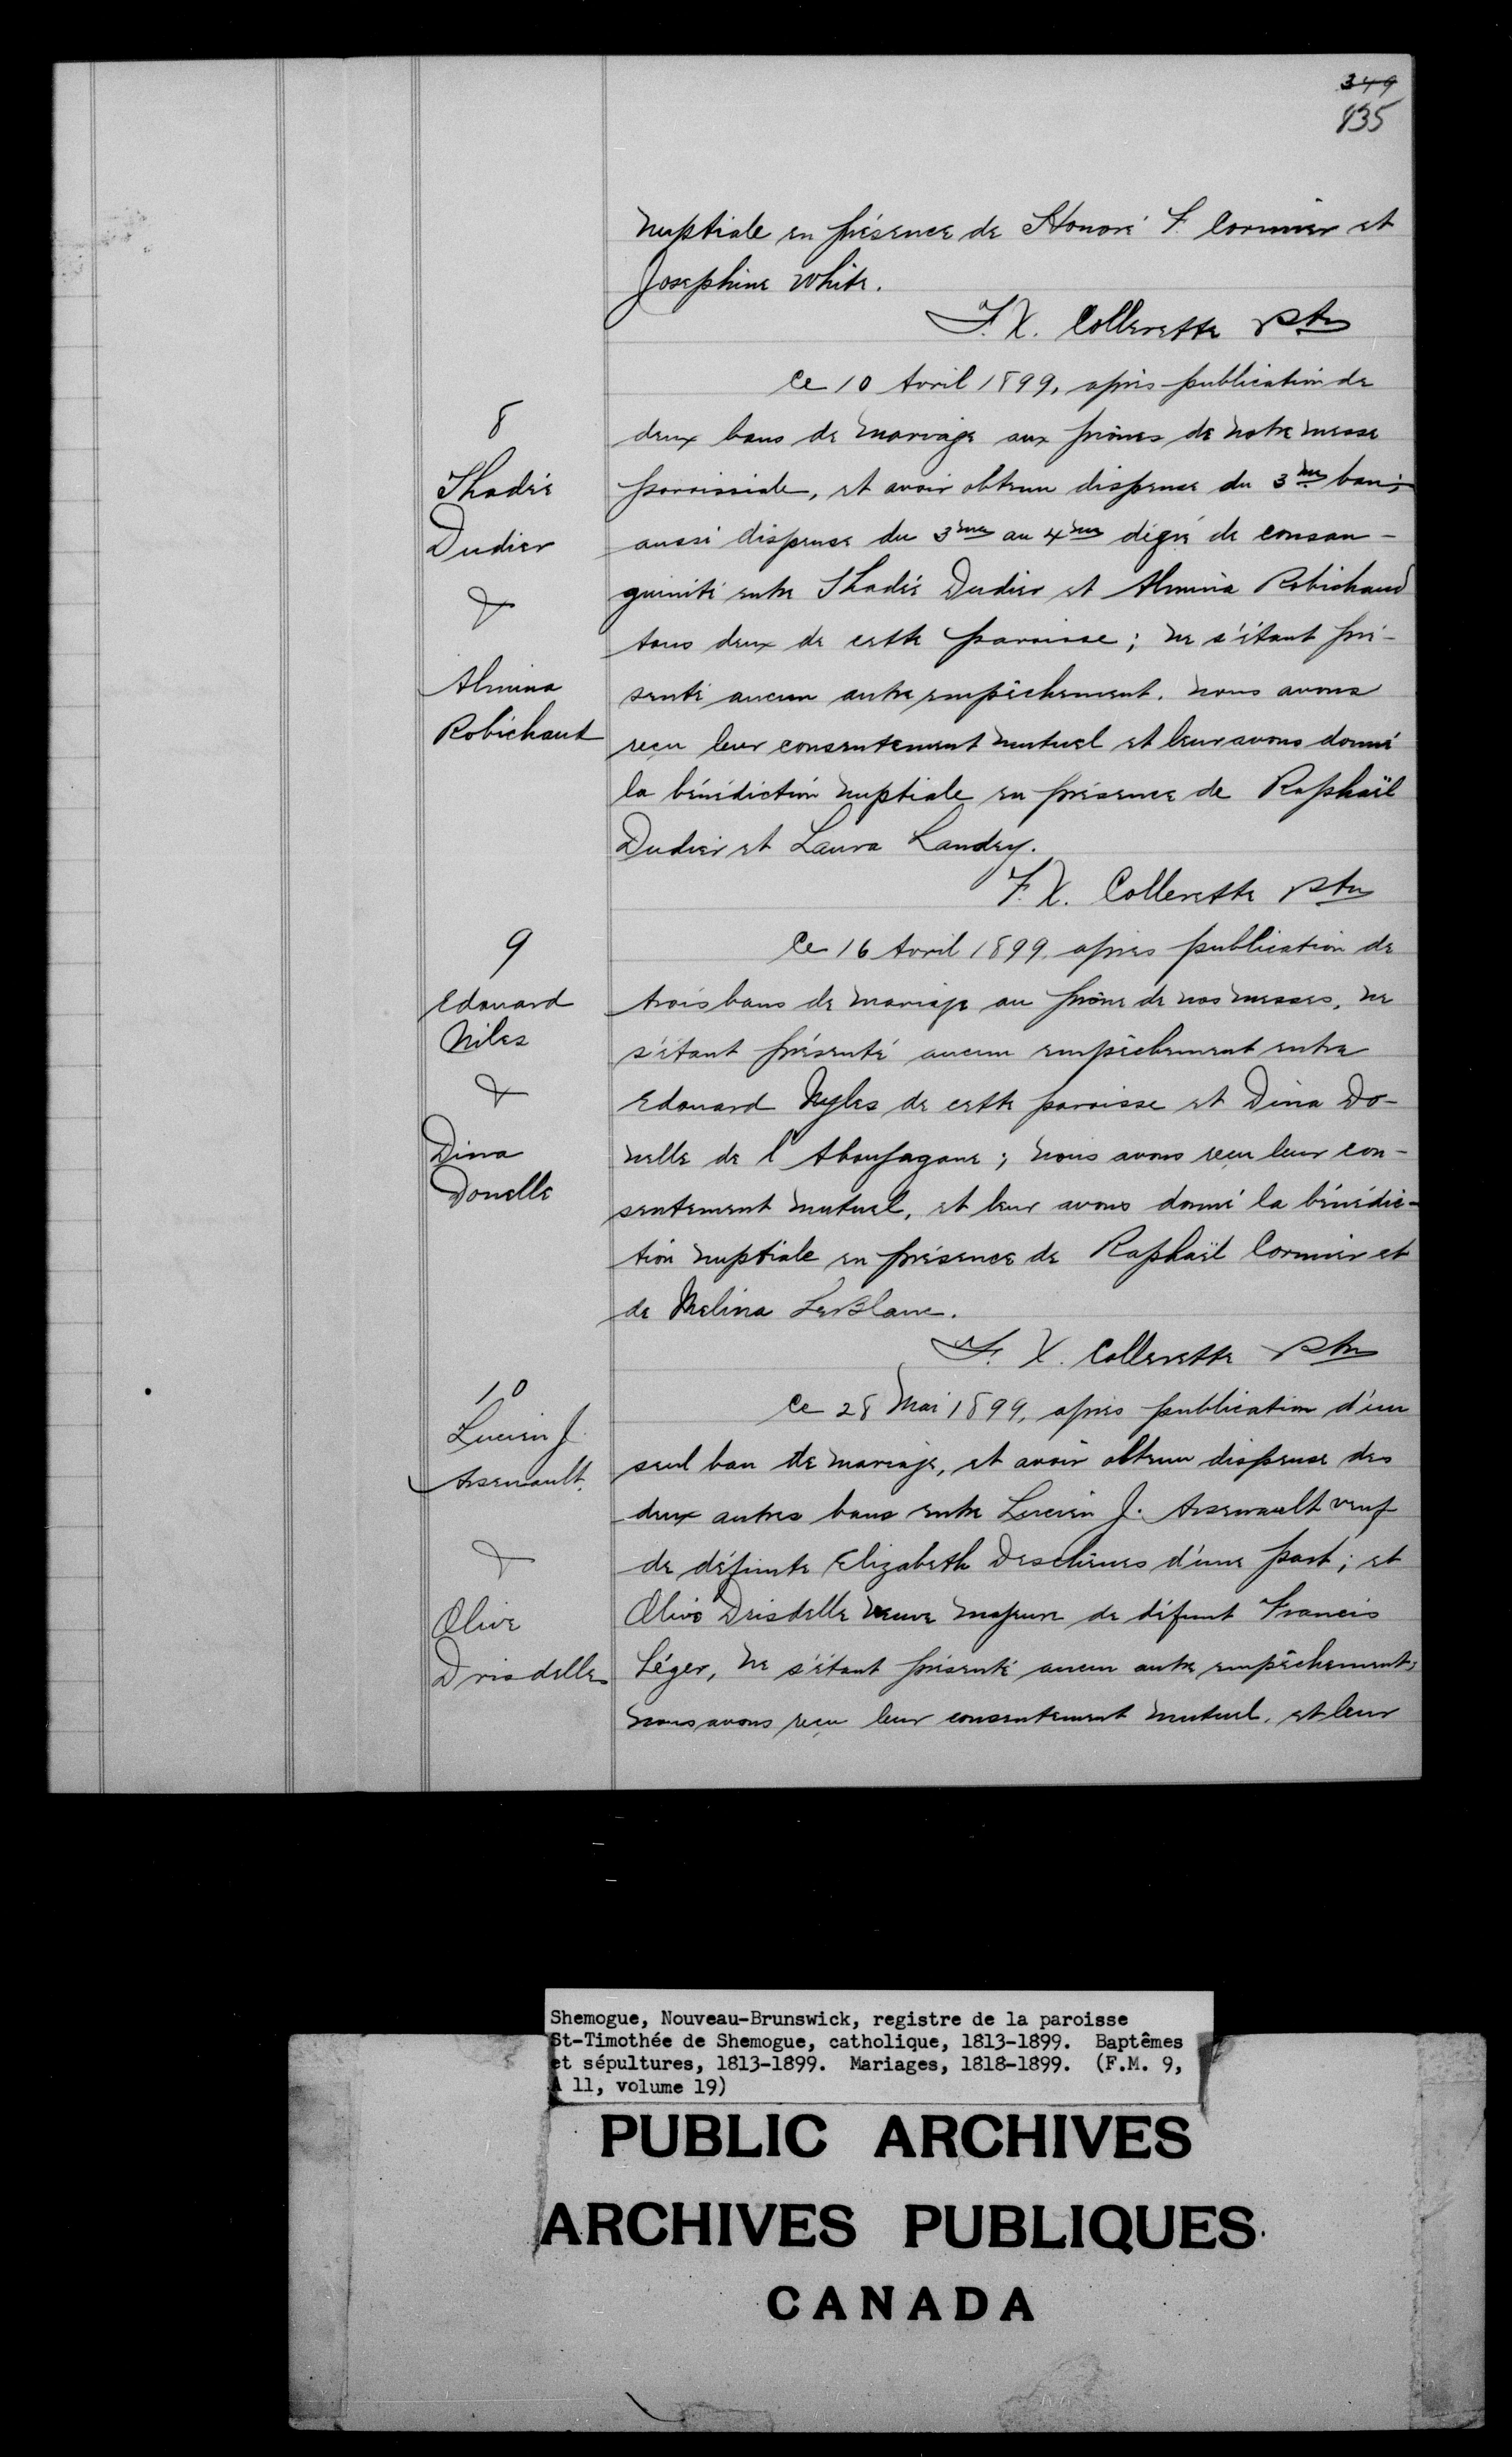 349
835
nuptiale en présence de Honoré F. Cormier et
Josephine White.
F. X. Collerette Ptre
8
Thadée
Dudier
&
Almina
Robichaud
Ce 10 Avril 1899, après publication de
deux bans de mariage aux prônes de notre messe
paroissiale, et avoir obtenu dispense du 3me ban;
aussi dispense du 3me au 4me dégré de consan-
guinité entre Thadée Dudier et Almina Robichaud
tous deux de cette paroisse; ne s'étant pré-
senté aucun autre empêchement. nous avons
reçu leur consentement mutuel et leur avons donné
la bénédiction nuptiale en présence de Raphaël
Dudier et Laura Landry.
F. X. Collerette Ptre
9
Edouard
Niles
&
Dina
Donelle
Ce 16 Avril 1899, après publication de
trois bans de mariage au prône de nos messes, ne
s'étant présenté aucun empêchement entre
Edouard Nyles de cette paroisse et Dina Do-
nelle de l'Aboujagane; nous avons reçu leur con-
sentement mutuel, et leur avons donné la bénédic-
tion nuptiale en présence de Raphaël Cormier et
de Melina LeBlanc.
F. X. Collerette Ptre
10
Lucien J.
Arsenault.
&
Olive
Drisdelle
Ce 28 Mai 1899, après publication d'un
seul ban de mariage, et avoir obtenu dispense des
deux autres bans entre Lucien J. Arsenault veuf
de défunte Elizabeth Deschênes d'une part; et
Olive Drisdelle veuve majeure de défunt Francis
Léger, ne s'étant présenté aucun autre empêchement,
nous avons reçu leur consentement mutuel, et leur
Shemogue, Nouveau-Brunswick, registre de la paroisse
St-Timothée de Shemogue, catholique, 1813-1899. Baptêmes
et sépultures, 1813-1899. Mariages, 1818-1899. (F.M. 9,
A 11, volume 19)
PUBLIC ARCHIVES
ARCHIVES PUBLIQUES
CANADA